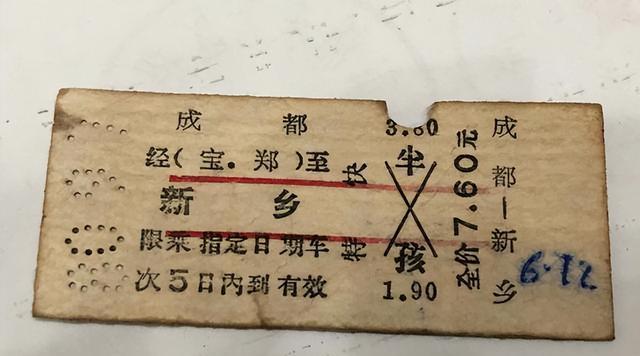 成都
经(宝.郑)至
新乡
限乘指定日期车
次5日内到有效
快
特
3.80
半
孩
1.90
全价7.60元
成都—新乡
6.12